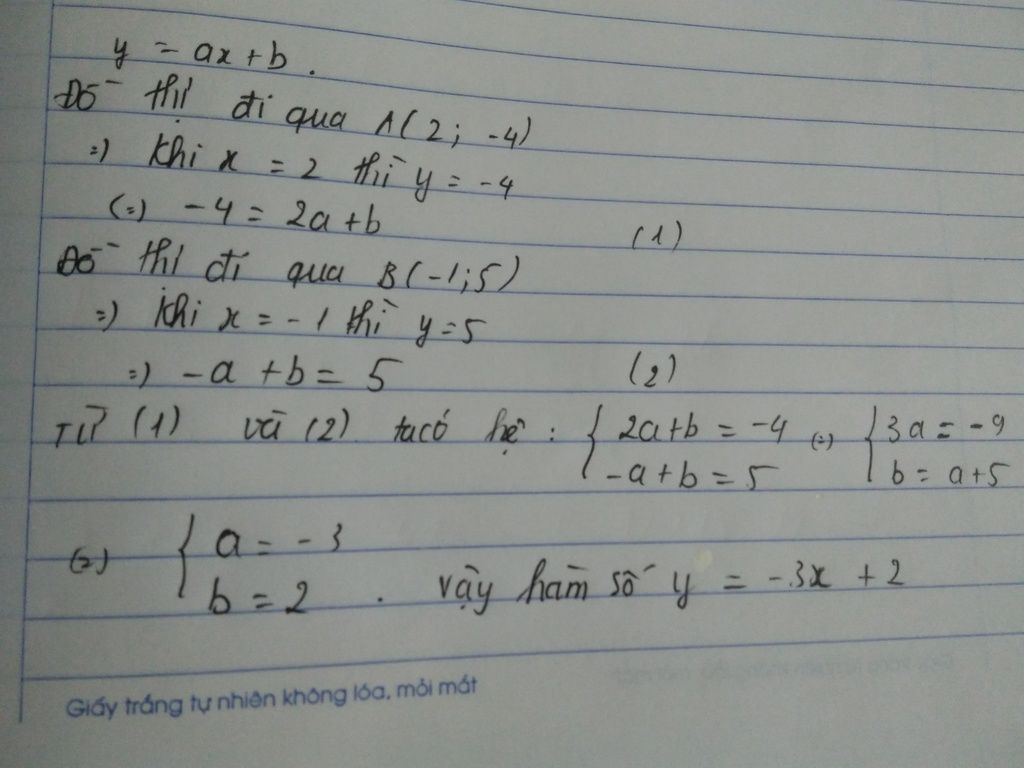 y = ax + b.
Đồ thị đi qua A(2; -4)
=) Khi x = 2 thì y = -4
(=) -4 = 2a + b (1)
Đồ thị đi qua B(-1; 5)
=) Khi x = -1 thì y = 5
=) -a + b = 5 (2)
Từ (1) và (2) ta có hệ : { 2a + b = -4 (=) { 3a = -9
-a + b = 5 b = a + 5
(=) { a = -3
b = 2 . vậy hàm số y = -3x + 2
Giấy trắng tự nhiên không lóa, mỏi mắt